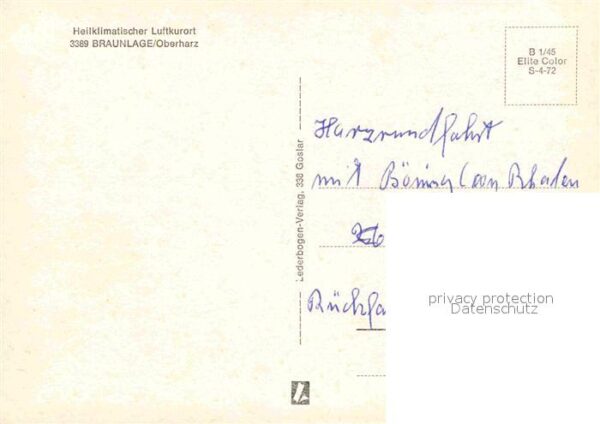 Heilklimatischer Luftkurort
3389 BRAUNLAGE/Oberharz
B 1/45
Elite Color
S-4-72
Lederbogen-Verlag, 338 Goslar
Harzrundfahrt
mit von
privacy protection
Datenschutz